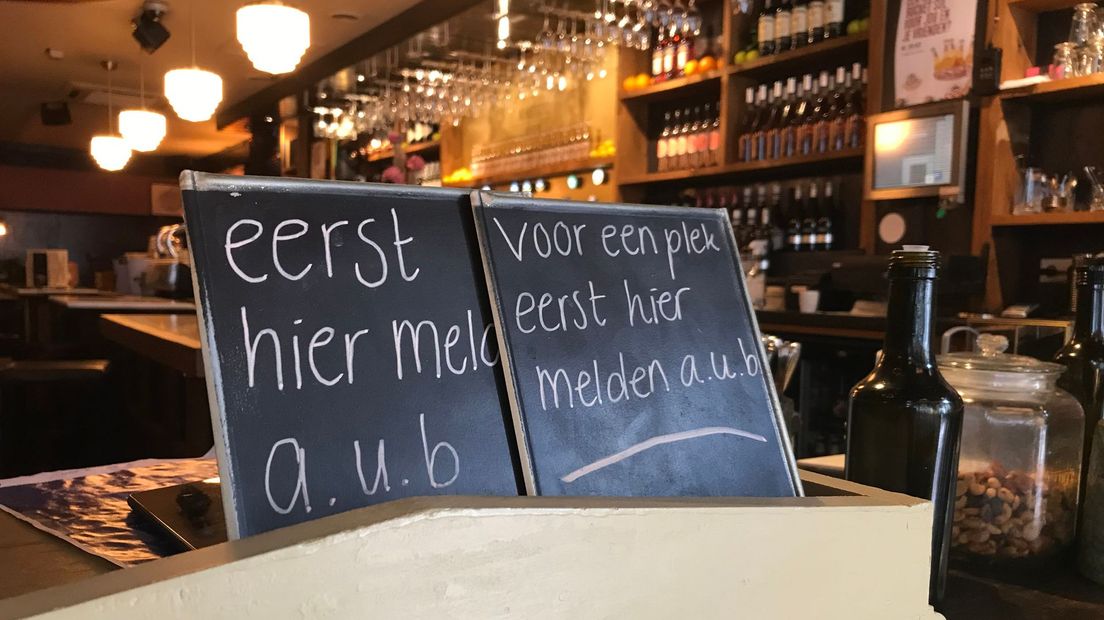 eerst
hier meld
a.u.b
voor een plek
eerst hier
melden a.u.b